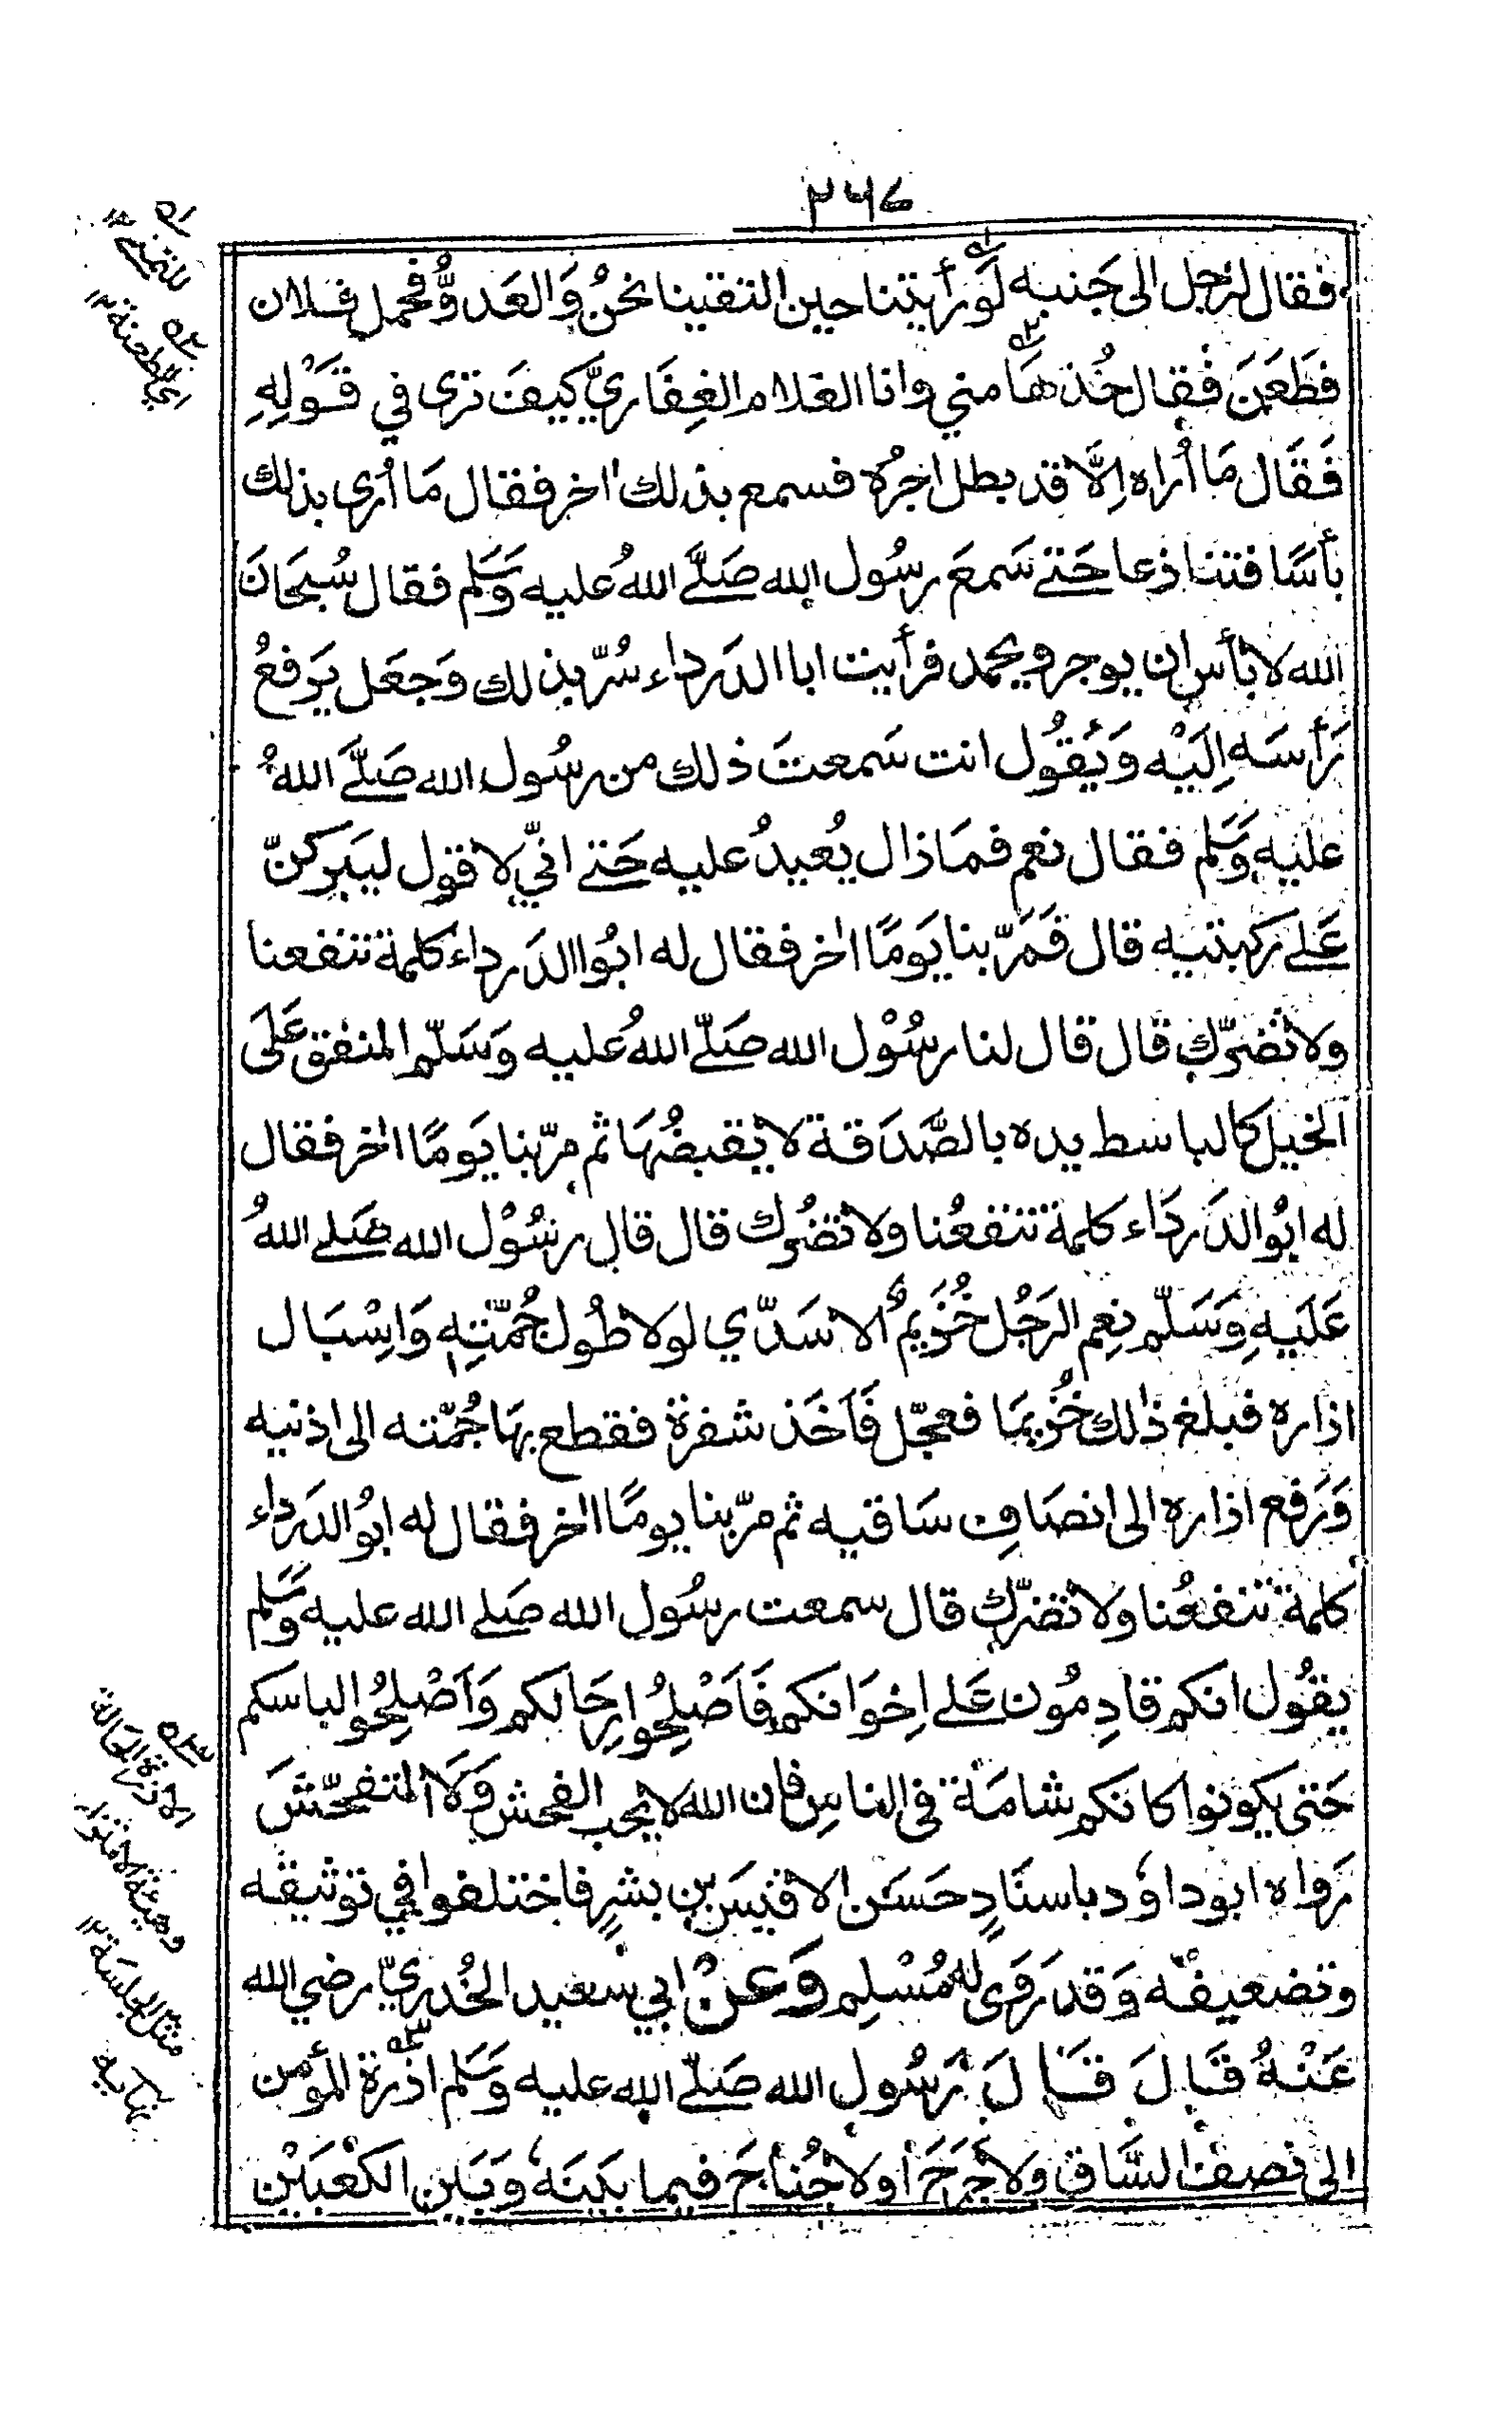 ٢٦٧
فقال لرجل الى جَنبه لَو رأيتنا حين التقينا نحنُ وَالعَدوُّ فحمل فلان
فطَعَنَ فقال خُذهَا مني وانا الغلام الغِفَاريّ كيفَ ترى في قَوْلِهِ
فَقَال مَا أُراه اِلَّا قد بطل اجرُه فسمع بذلك اٰخر فقال مَا أُرى بذلك
بأسًا فتنازعا حَتے سَمعَ رسُول الله صَلَّے اللهُ عليه وَسَلم فقال سُبحَانَ
الله لا بأس ان يوجر ويحمد فرأيت ابا الدَرداء سُرّ بذلك وَجعَل يَرفعُ
رَأسَه اِلَيْه وَيَقُول انت سَمعتَ ذلك من رسُول الله صَلَّے اللهُ
عليه وَسَلم فقال نعم فمَا ذال يُعيدُ عليه حَتے انّي لاقول ليَبركنّ
عَلے ركبتيه قال فَمَرّ بنا يَومًا اٰخر فقال له ابُوا الدَرداء كلمة تنفعنا
ولا تضرّك قال قال لنا رسُوْل الله صَلّے اللهُ عليه وَسَلّم المنفق عَلَى
الخيل كالباسط يده بالصَّدَقة لا يقبضُهَا ثم مرّ بنا يَومًا اٰخر فقال
له ابُو الدَردَاء كلمة تنفعُنا ولا تضُرك قال قال رسُوْل الله صَلے اللهُ
عَلَيهِ وَسَلّم نِعم الرَجُل خُزَيمُ الاسَدّي لولا طُول جُمّتِهٖ وَاِسْبَال
اذاره فبلغ ذٰلك خُزيمَا فعجّل فَاَخَذ شفرة فقطع بهَا جُمّته الى اذنيه
وَرَفع اذاره الى انصَافِ سَاقيه ثم مرّ بنا يومًا اٰخر فقال له ابُو الدَرداء
كلمة تنفعُنا ولا تضرّك قال سمعت رسُول الله صَلے الله عليه وسَلم
يقُول انكم قادِمُون عَلے اِخوَانكم فَاَصْلِحُوا رِحَالكم وَاَصْلِحُوا لباسكم
حَتى يكونوا كانكم شامَة في الناس فان الله لا يحب الفحش وَلَا المتفحّشَ
رَواه ابو داؤد باسنَادٍ حَسَن الا قيسَ بن بشرٍ فاختلفوا في توثيقه
وتضعيفه وَقد رَوَى له مُسْلِم وَعَنْ ابي سعيد الخُدريّ رضي الله
عَنْهُ قَالَ قَالَ رَسُول الله صَلّے الله عليه وَسَلم اذرة المؤمن
الى نصف السَّاق ولا حَرَجَ أو لا جُناحَ فيما بَينَهٗ وَبَين الكَعْبَيْن
للتمنے ١٢
اي الطعنة ١٢
مثل الجلسَة ١٢
نهايه